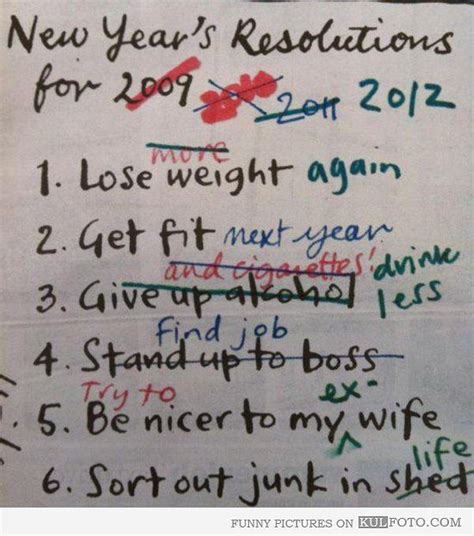 New Year's Resolutions
for 2009 2011 2012
more
1. Lose weight again
2. Get fit next year
and cigarettes! drink
3. Give up alcohol less
find job
4. Stand up to boss
Try to ex-
5. Be nicer to my wife
life
6. Sort out junk in shed
FUNNY PICTURES ON KULFOTO.COM